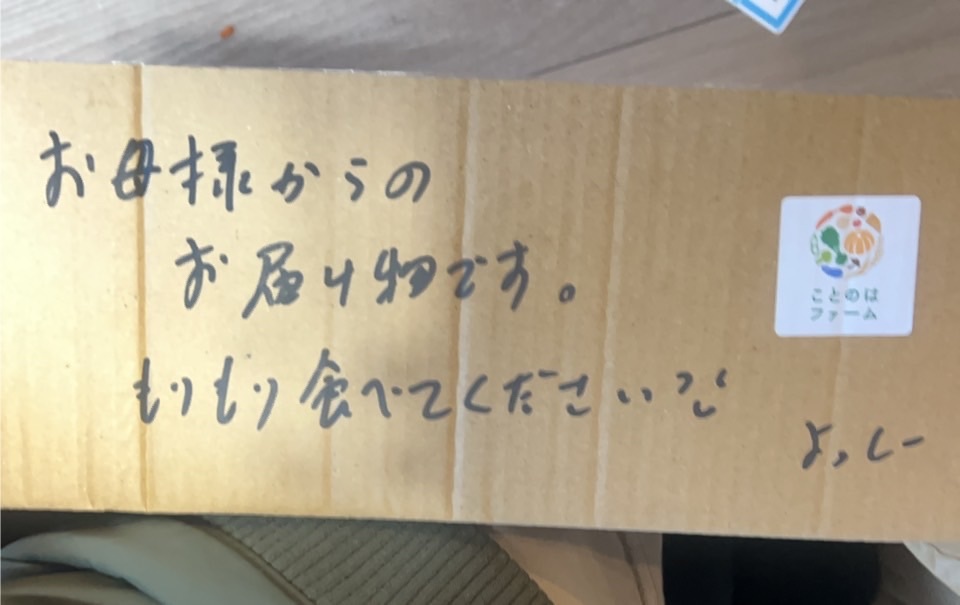 お母様からの
お届け物です。
もりもり食べてくださいね
よっしー
ことのは
ファーム